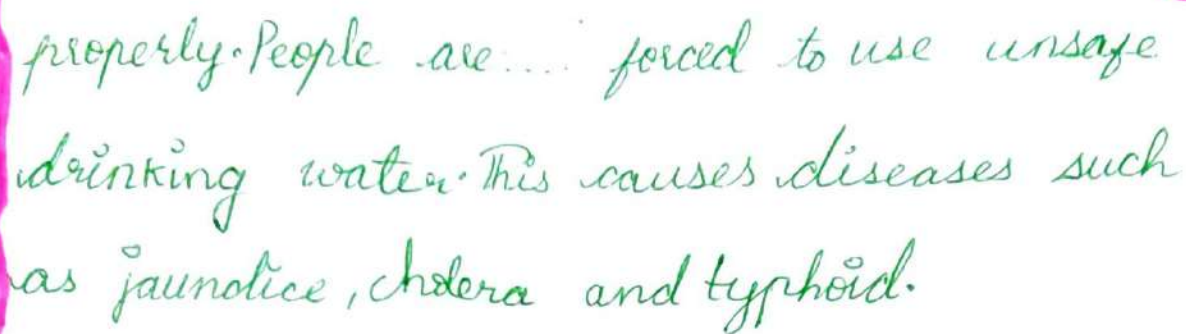 properly. People are.... forced to use unsafe
drinking water. This causes diseases such
as jaundice, cholera and typhoid.